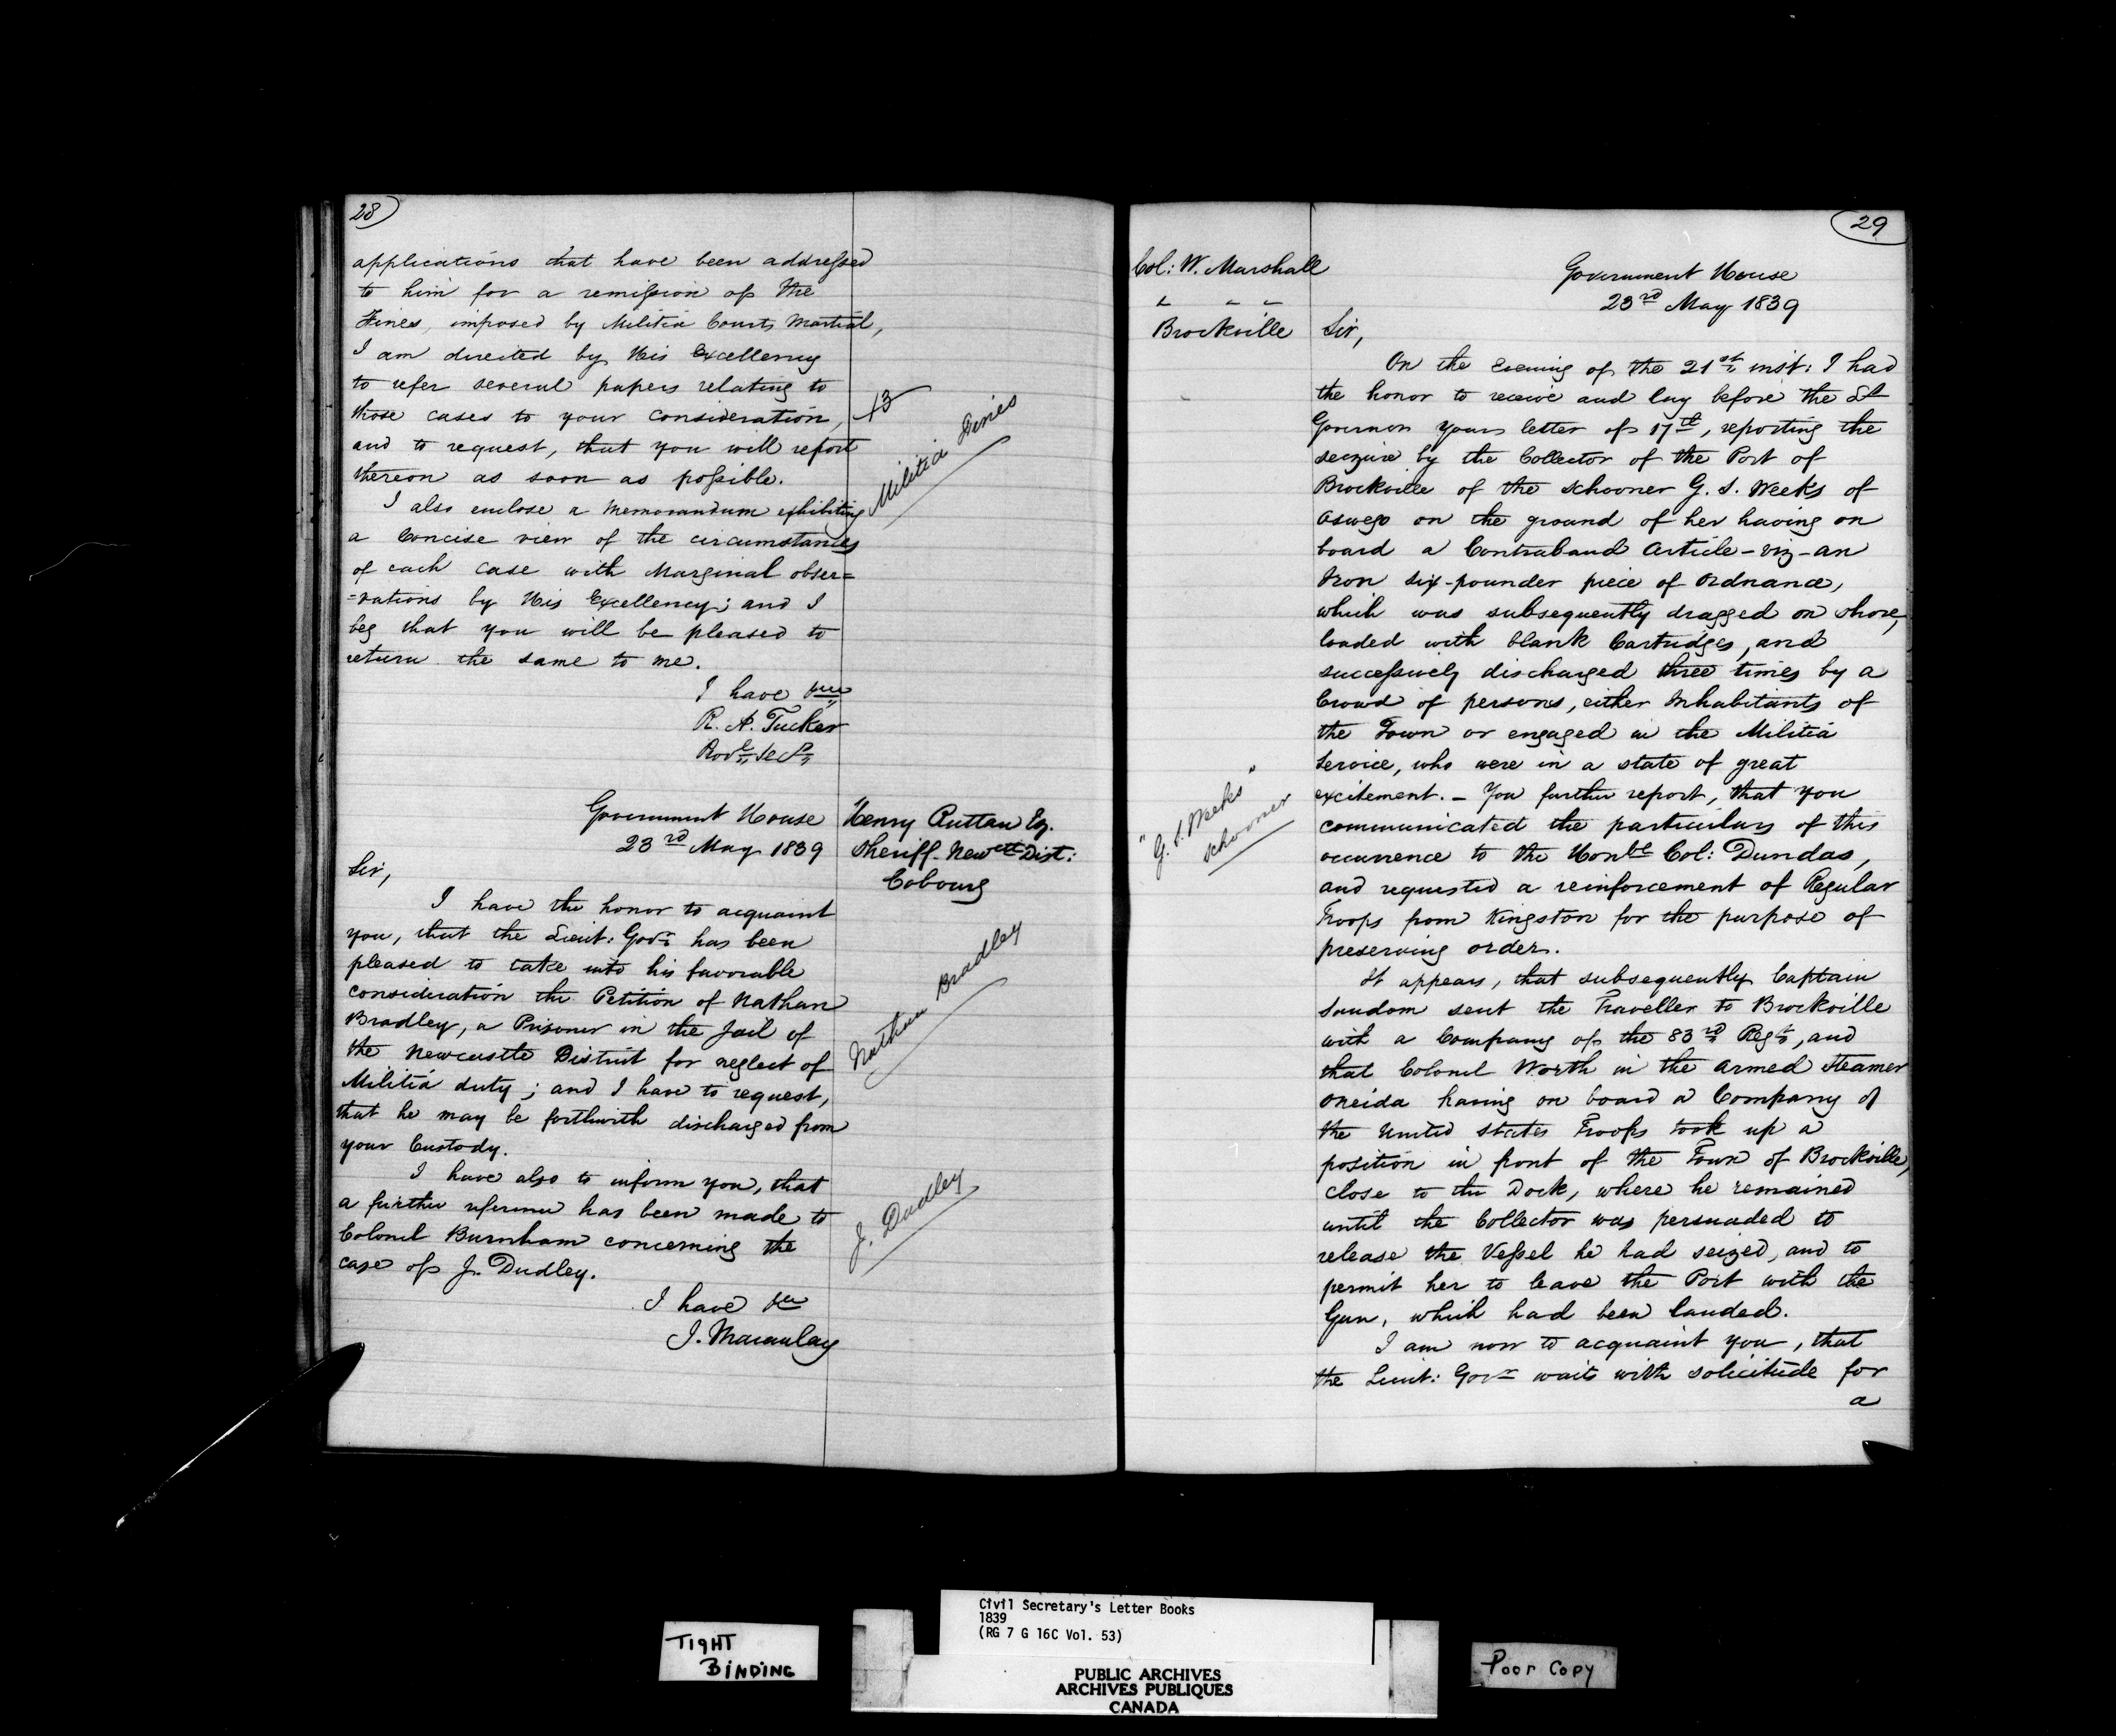 28
applications that have been addressed
to him for a remission of the
Fines, imposed by Militia Courts Martial,
I am directed by His Excellency
to refer several papers relating to
those cases to your consideration,
and to request, that you will report
thereon as soon as possible.
I also enclose a Memorandum exhibiting
a Concise view of the circumstances
of each case with Marginal obser=
=vations by His Excellency; and I
beg that you will be pleased to
return the same to me.
I have &c
R. A. Tucker
13
Militia Fines
Government House
23rd May 1839
Henry Ruttan Esq.
Sheriff Newcle Dist:
Cobourg
Sir,
I have the honor to acquaint
you, that the Lieut: Govr has been
pleased to take into his favorable
consideration the Petition of Nathan
Bradley, a Prisoner in the Jail of
the Newcastle District for neglect of
Militia duty; and I have to request,
that he may be forthwith discharged from
your Custody.
Nathan Bradley
I have also to inform you, that
a further reference has been made to
Colonel Burnham concerning the
case of J. Dudley.
J. Dudley
I have &c
J. Macaulay
29
Col: W. Marshall
Brockville
Government House
23rd May 1839
Sir,
On the Evening of the 21st inst: I had
the honor to receive and lay before the Lt
Governor your letter of 17th, reporting the
seizure by the Collector of the Port of
Brockville of the Schooner G. S. Weeks of
Oswego on the ground of her having on
board a Contraband Article - viz - an
Iron six-pounder piece of Ordnance,
which was subsequently dragged on shore,
loaded with blank Cartridges, and
successively discharged three times by a
Crowd of persons, either Inhabitants of
the Town or engaged in the Militia
Service, who were in a state of great
excitement. - You further report, that you
communicated the particulars of this
occurrence to the Honble Col: Dundas,
and requested a reinforcement of Regular
Troops from Kingston for the purpose of
preserving order.
"G. S. Weeks"
Schooner
It appears, that subsequently Captain
Sandom sent the Traveller to Brockville
with a Company of the 83rd Regt, and
that Colonel Worth in the armed Steamer
Oneida having on board a Company of
the United States Troops took up a
position in front of the Town of Brockville,
close to the Dock, where he remained
until the Collector was persuaded to
release the Vessel he had seized, and to
permit her to leave the Port with the
Gun, which had been landed.
I am now to acquaint you, that
the Lieut: Govr waits with solicitude for
a
TIGHT
BINDING
Civil Secretary's Letter Books
1839
(RG 7 G 16C Vol. 53)
PUBLIC ARCHIVES
ARCHIVES PUBLIQUES
CANADA
Poor Copy